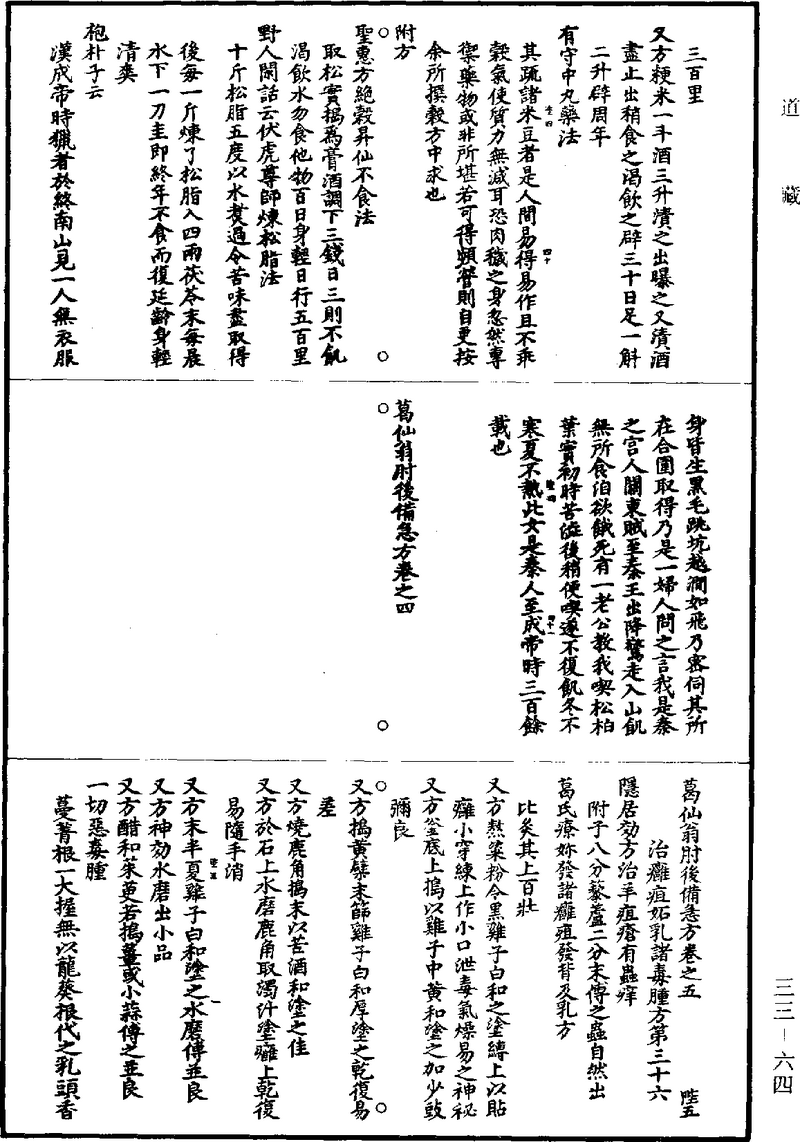 道藏
三百里
又方粳米一斗酒三升漬之出曝之又漬酒
盡止出稍食之渴飲之辟三十日足一斛
二升辟周年
有守中丸藥法
其疏諸米豆者是人間易得易作且不乖
穀氣使質力無減耳恐肉穢之身忽然專
禦藥物或非所堪若可得頻營則自更按
余所撰穀方中求也
附方
聖惠方絕穀昇仙不食法
取松實搗為膏酒調下三錢日三則不飢
渴飲水勿食他物百日身輕日行五百里
野人閑話云伏虎尊師煉松脂法
十斤松脂五度以水煑過令苦味盡取得
後每一斤煉了松脂入四兩茯苓末每晨
水下一刀圭即終年不食而復延齡身輕
清爽
抱朴子云
漢成帝時獵者於終南山見一人無衣服
身皆生黑毛跳坑越澗如飛乃密伺其所
在合圍取得乃是一婦人問之言我是秦
之宮人關東賊至秦王出降驚走入山飢
無所食洎欲餓死有一老公教我喫松柏
葉實初時苦澁後稍便喫遂不復飢冬不
寒夏不熱此女是秦人至成帝時三百餘
載也
葛仙翁肘後備急方卷之四
葛仙翁肘後備急方卷之五 陛五
治癰疽妬乳諸毒腫方第三十六
隱居効方治羊疽瘡有蟲痒
附子八分藜蘆二分末傅之蟲自然出
葛氏療妳發諸癰疽發背及乳方
比炙其上百壯
又方熬粢粉令黑雞子白和之塗練上以貼
癰小穿練上作小口泄毒氣燥易之神秘
又方釜底上搗以雞子中黃和塗之加少豉
彌良
又方搗黃蘗末篩雞子白和厚塗之乾復易
差
又方燒鹿角搗末以苦酒和塗之佳
又方於石上水磨鹿角取濁汁塗癰上乾復
易隨手消
又方末半夏雞子白和塗之水磨傅並良
又方神効水磨出小品
又方醋和茱萸若搗薑或小蒜傅之並良
一切惡毒腫
蔓菁根一大握無以龍葵根代之乳頭香
三三－六四